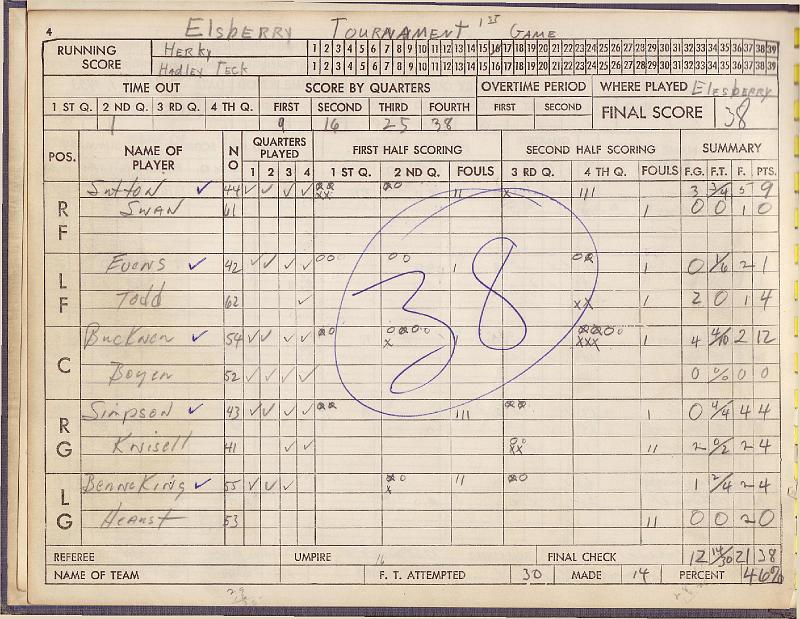 4 Elsberry Tournament 1st Game
RUNNING SCORE Herky 1 2 3 4 5 6 7 8 9 10 11 12 13 14 15 16 17 18 19 20 21 22 23 24 25 26 27 28 29 30 31 32 33 34 35 36 37 38 39
Hadley Teck 1 2 3 4 5 6 7 8 9 10 11 12 13 14 15 16 17 18 19 20 21 22 23 24 25 26 27 28 29 30 31 32 33 34 35 36 37 38 39
TIME OUT SCORE BY QUARTERS OVERTIME PERIOD WHERE PLAYED Elesberry
1 ST Q. 2 ND Q. 3 RD Q. 4 TH Q. FIRST SECOND THIRD FOURTH FIRST SECOND FINAL SCORE 38
1 9 16 25 38
POS. NAME OF PLAYER NO QUARTERS PLAYED FIRST HALF SCORING SECOND HALF SCORING SUMMARY
1 2 3 4 1 ST Q. 2 ND Q. FOULS 3 RD Q. 4 TH Q. FOULS F.G. F.T. F. PTS.
RF Sutton ✓ 44 ✓ ✓ ✓ ✓ 3 3/4 5 9
Swan 61 0 0 1 0
LF Evens ✓ 42 ✓ ✓ ✓ ✓ 0 1/6 2 1
Todd 62 ✓ xx 2 0 1 4
38
C Bucknen ✓ 54 ✓ ✓ ✓ ✓ xxx 4 4/10 2 12
Boyen 52 ✓ ✓ ✓ ✓ 0 0 0
RG Simpson ✓ 43 ✓ ✓ ✓ ✓ 0 4/4 4 4
Knisell 41 ✓ ✓ 2 0/2 2 4
LG Benneking ✓ 55 ✓ ✓ ✓ 1 2/4 2 4
Hearst 53 0 0 2 0
REFEREE UMPIRE 16 FINAL CHECK 12 14/30 21 38
NAME OF TEAM F. T. ATTEMPTED 30 MADE 14 PERCENT 46%